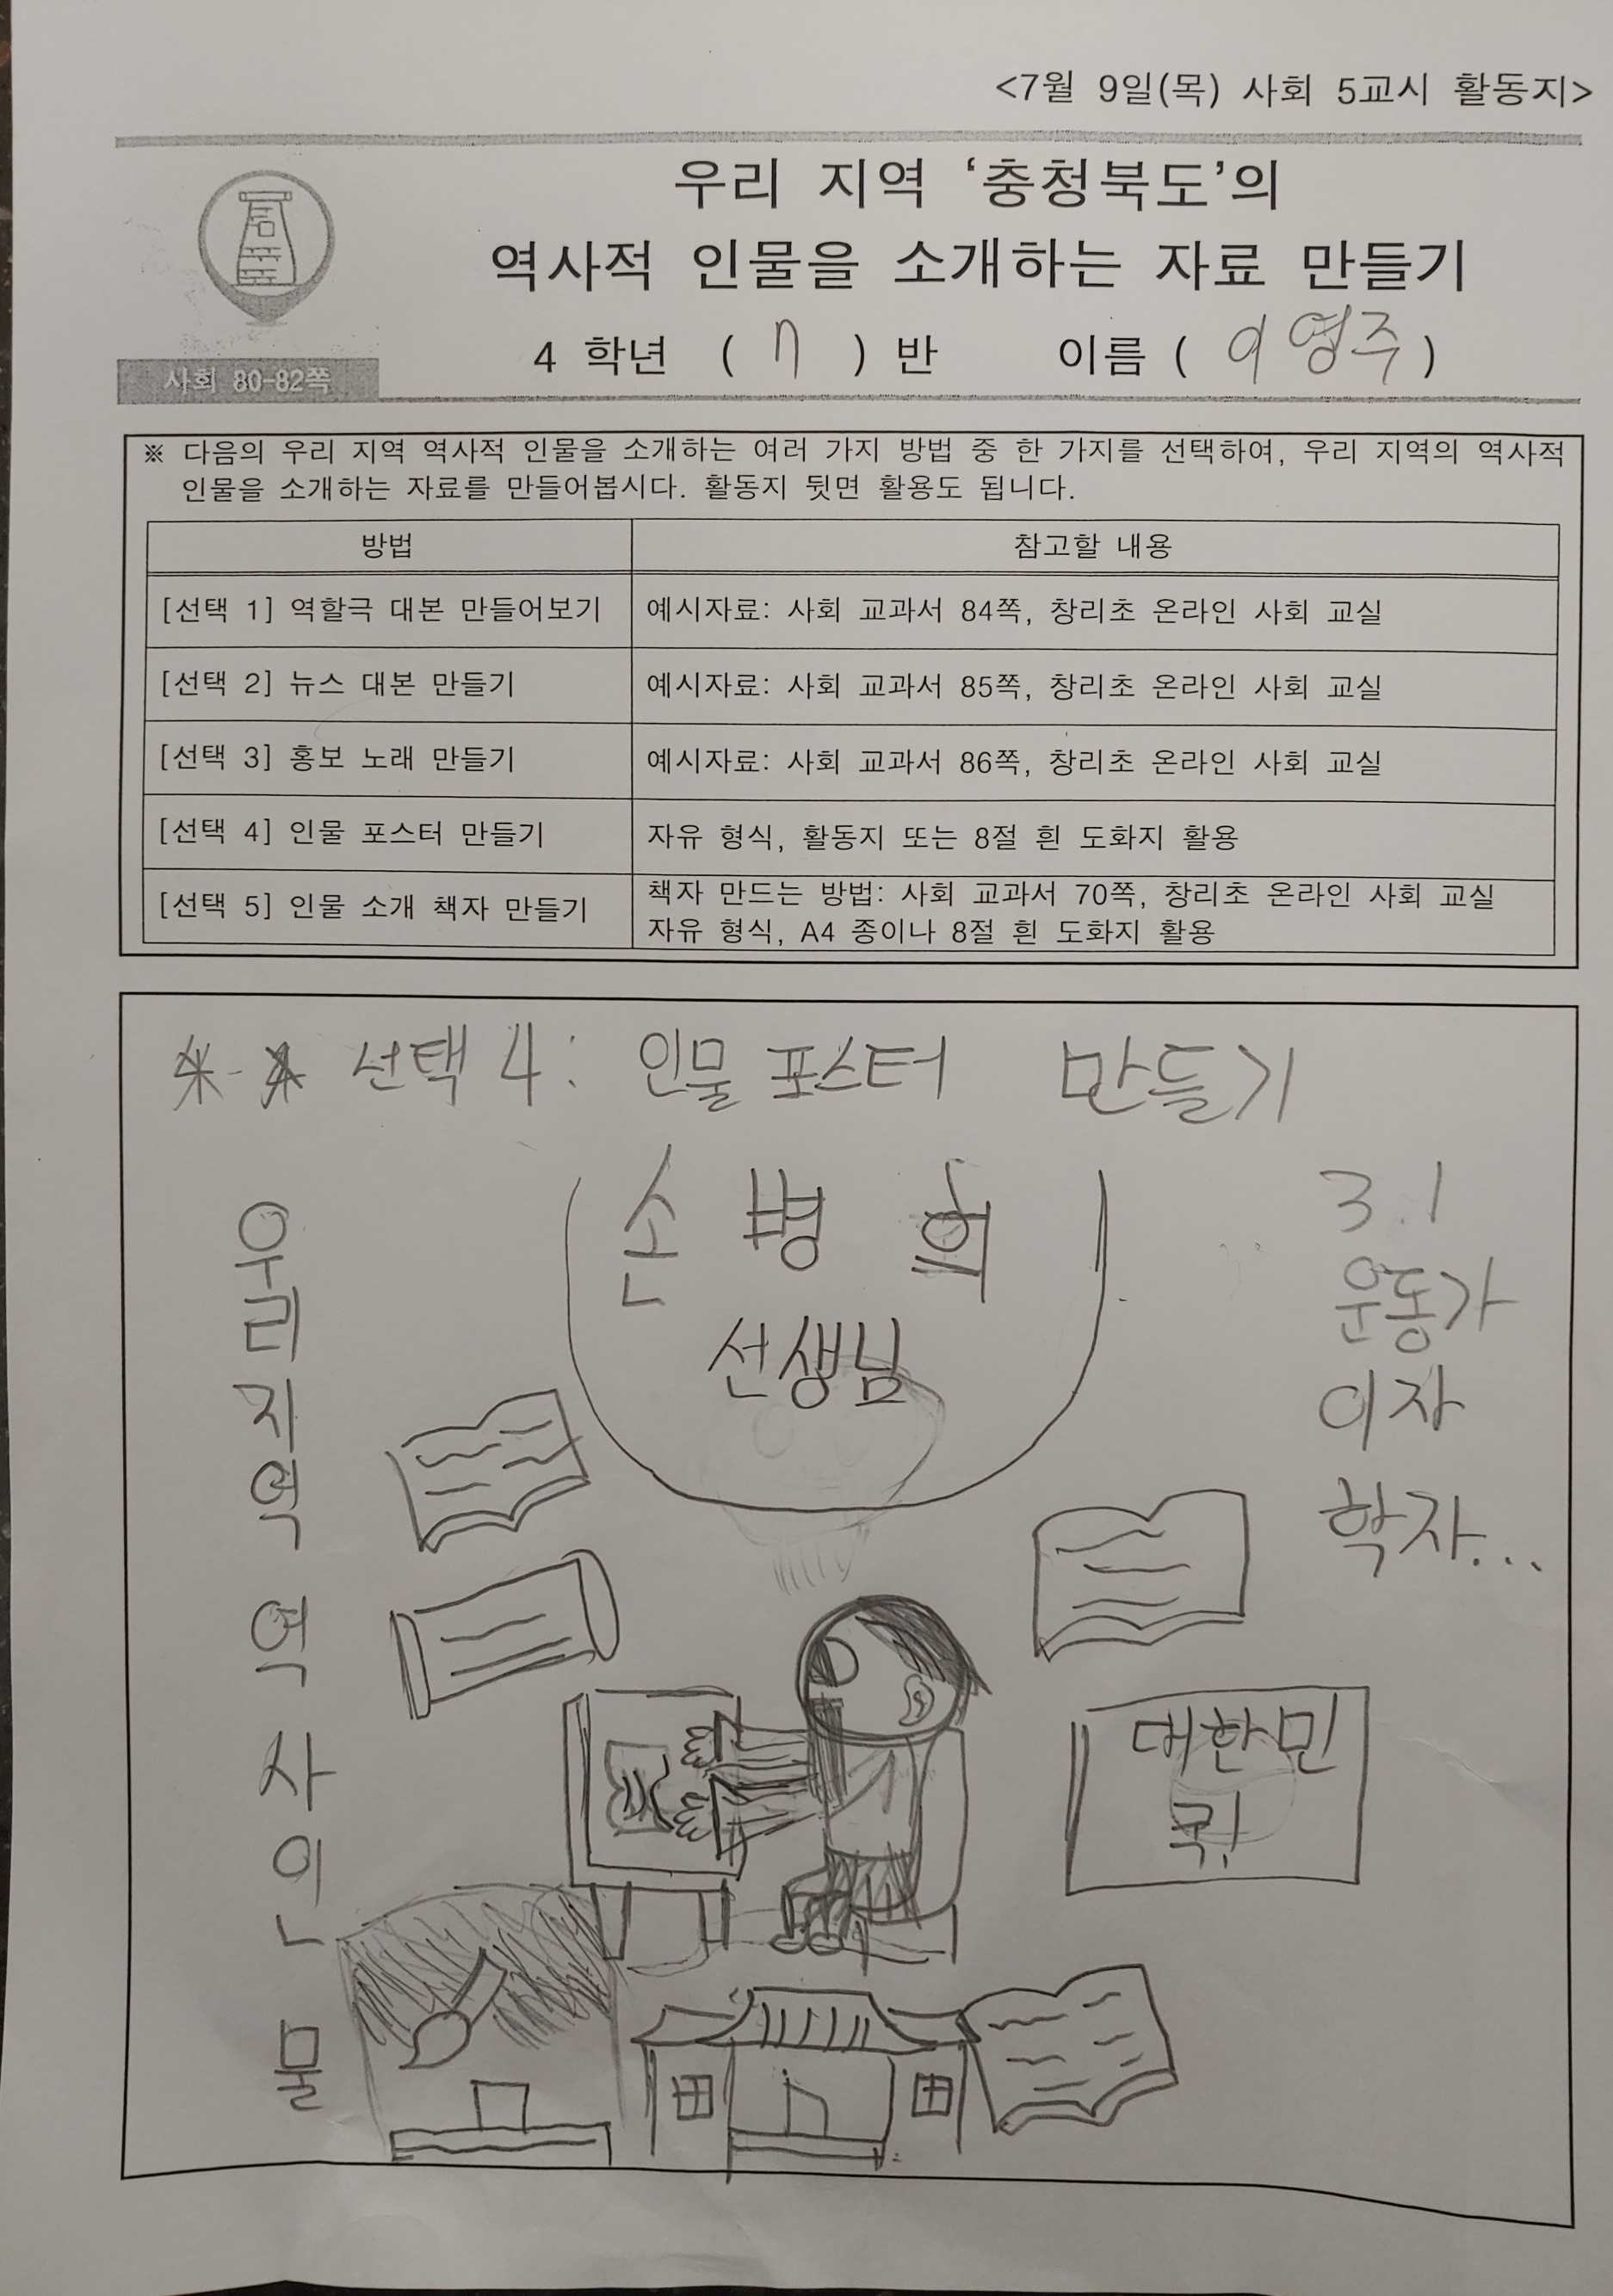 <7월 9일(목) 사회 5교시 활동지>
우리 지역 '충청북도'의
역사적 인물을 소개하는 자료 만들기
4 학년 ( 7 ) 반 이름 ( 이영주 )
사회 80-82쪽
※ 다음의 우리 지역 역사적 인물을 소개하는 여러 가지 방법 중 한 가지를 선택하여, 우리 지역의 역사적
인물을 소개하는 자료를 만들어봅시다. 활동지 뒷면 활용도 됩니다.
방법 참고할 내용
[선택 1] 역할극 대본 만들어보기 예시자료: 사회 교과서 84쪽, 창리초 온라인 사회 교실
[선택 2] 뉴스 대본 만들기 예시자료: 사회 교과서 85쪽, 창리초 온라인 사회 교실
[선택 3] 홍보 노래 만들기 예시자료: 사회 교과서 86쪽, 창리초 온라인 사회 교실
[선택 4] 인물 포스터 만들기 자유 형식, 활동지 또는 8절 흰 도화지 활용
[선택 5] 인물 소개 책자 만들기 책자 만드는 방법: 사회 교과서 70쪽, 창리초 온라인 사회 교실
자유 형식, A4 종이나 8절 흰 도화지 활용
선택 4: 인물 포스터 만들기
우리지역 역사인물
손병희
선생님
3.1
운동가
이자
학자...
대한민
국!